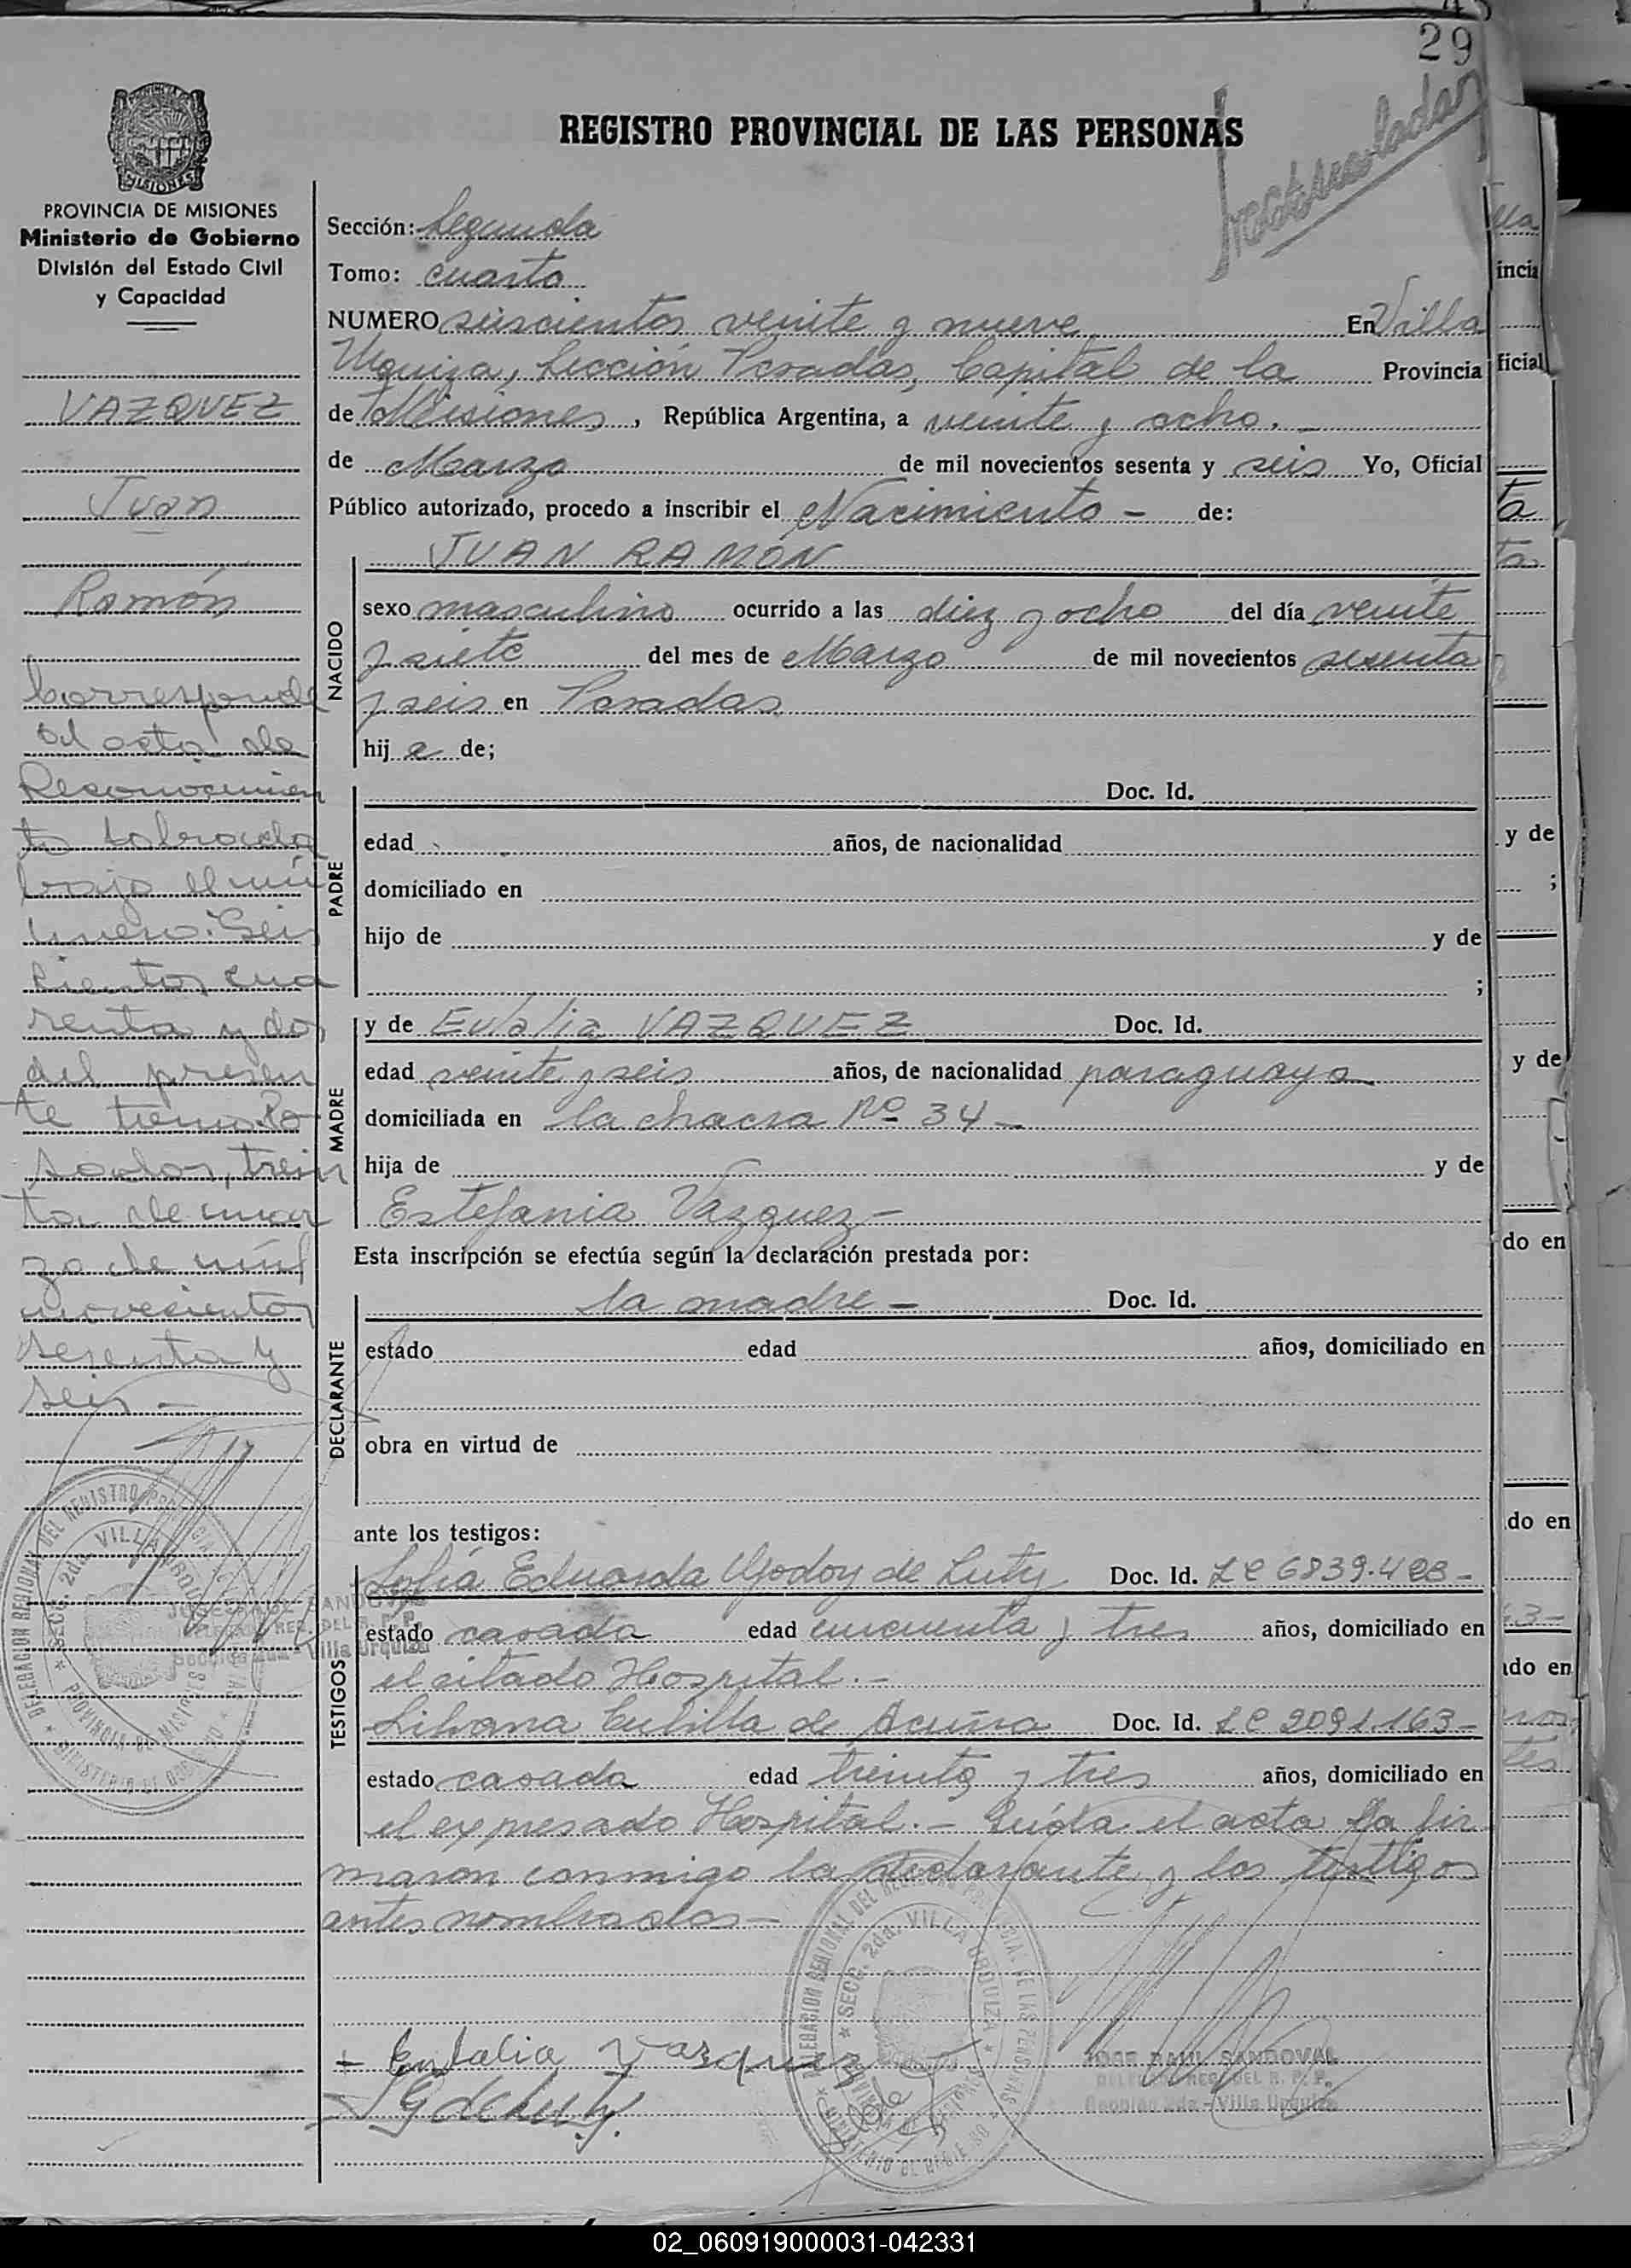 29
REGISTRO PROVINCIAL DE LAS PERSONAS
PROVINCIA DE MISIONES
Ministerio de Gobierno
División del Estado Civil
y Capacidad
VAZQUEZ
Juan
Ramón
Corresponde
al acta de
Reconocimien
to labrada
bajo el nú
mero: Seis
cientos cua
renta y dos
del presen
te tomo. Po
sadas, trein
ta de mar
zo de mil
novecientos
sesenta y
seis -
Sección: Segunda
Tomo: cuarto
NUMERO seiscientos veinte y nueve En Villa
Urquiza, Sección Posadas, Capital de la Provincia
de Misiones, República Argentina, a veinte y ocho. -
de Marzo de mil novecientos sesenta y seis Yo, Oficial
Público autorizado, procedo a inscribir el Nacimiento - de:
JUAN RAMÓN
NACIDO
sexo masculino ocurrido a las diez y ocho del día veinte
y siete del mes de Marzo de mil novecientos sesenta
y seis en Posadas
hij o de;
PADRE
Doc. Id.
edad años, de nacionalidad
domiciliado en
hijo de y de
;
MADRE
y de Eulalia VAZQUEZ Doc. Id.
edad veinte y seis años, de nacionalidad paraguaya
domiciliada en la chacra Nº 34 -
hija de y de
Estefania Vazquez -
Esta inscripción se efectúa según la declaración prestada por:
DECLARANTE
la madre - Doc. Id.
estado edad años, domiciliado en
obra en virtud de
ante los testigos:
TESTIGOS
Sofía Eduarda Godoy de Luty Doc. Id. LC 6839.428 -
estado casada edad cincuenta y tres años, domiciliado en
el citado Hospital. -
Liliana Cubilla de Acuña Doc. Id. LC 2091.163 -
estado casada edad treinta y tres años, domiciliado en
el expresado Hospital. - Leída el acta la fir
maron conmigo la declarante y los testigos
antes nombrados -
Eulalia Vazquez
JOSE RAUL SANDOVAL
DELEGADO REG. DEL R. P. P.
Sección 2da. - Villa Urquiza
02_060919000031-042331